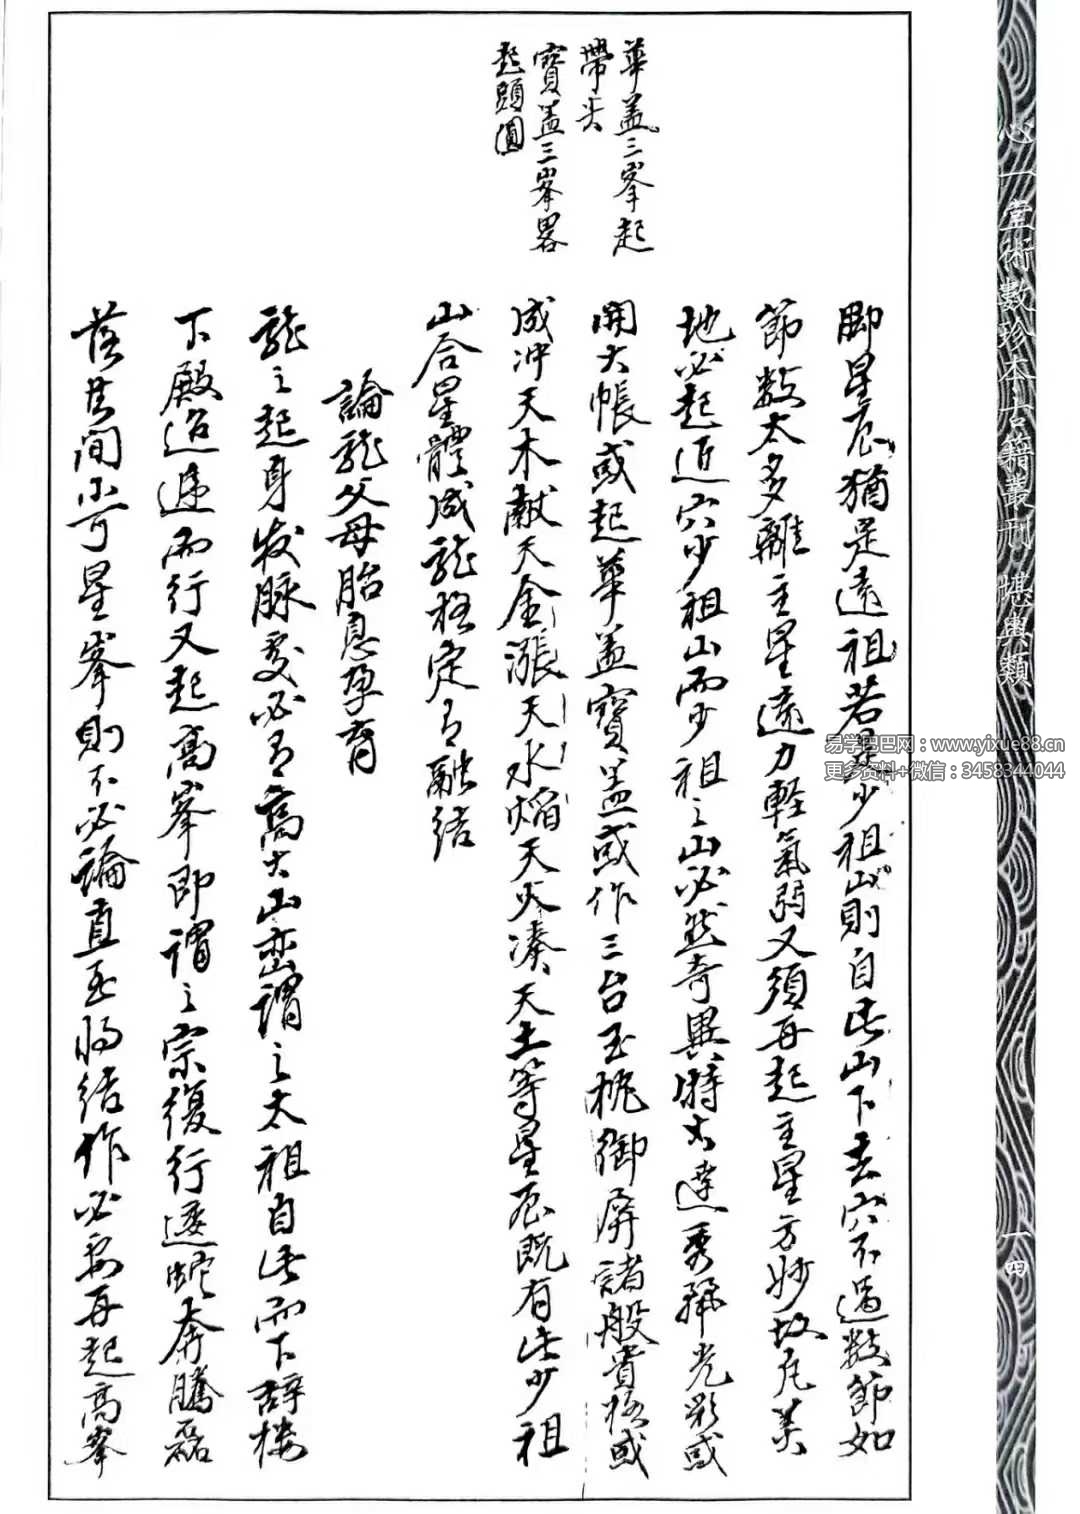 心一堂術數珍本古籍叢刊 堪輿類
一四
華盖三峯起
帶尖
寶盖三峯畧
起頭圓
脚星辰猶是遠祖若是少祖山則自此山下去穴不過数節如
節数太多離主星遠力軽氣弱又須再起主星方妙故凢美
地必起近穴少祖山而少祖之山必然奇異特大達秀麗光彩或
開大帳或起華盖寶盖或作三台玉桃御屏諸般貴格或
成冲天木献天金漲天水焰天火湊天土等星辰既有此少祖
山合星體成龍格定有融结
論龍父母胎息孕育
龍之起身发脉处必有高大山峦謂之太祖自此而下辞楼
下殿迢遞而行又起高峯即謂之宗復行逶蛇奔騰磊
落其間小可星峯則不必論直至将结作必要再起高峯
易学巴巴网：www.yixue88.cn
更多资料+微信：3458344044